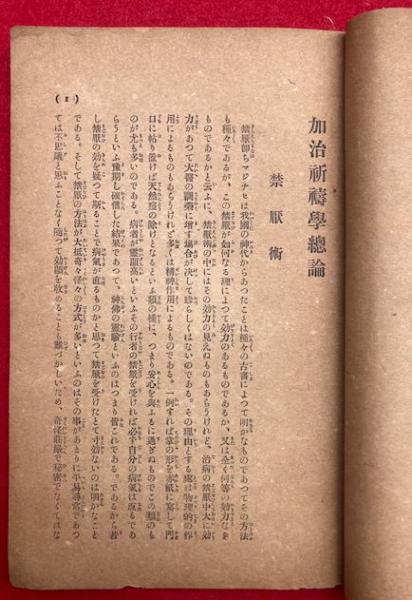 加治祈禱學總論
禁厭術
禁厭即ちマジナヒは我國の神代からあつたことは種々の古書によつて明かなものであつてその方法
も種々であるが、この禁厭が如何なる理によつて効力のあるものであるか、又は全く何等の効力なき
ものであるかと云ふに、禁厭術の中にはその効力の見えぬものもあらうけれど、治病の禁厭中大に効
力があつて大醫の調藥に增す場合が決して珍らしくはないのである。その理由とする處は物理的の作
用によるものもあらうけれど多くは精神作用によるものである。一例すれば掌の形を赤紙に寫して門
口に粘り置けば天然痘の除けとなるといふ類の樣に、つまり安心を與ふるに過ぎぬものでこの類のも
のが尤も多いのである。病者が靈顯高いといふその行者の禁厭を受ければ必ず自分の病氣は直るであ
らうといふ豫期し確信した結果であつて、神佛の靈驗といふのはつまり皆これである。であるから若
し禁厭の効を疑つて斯ることで病氣が直るものかと思つて禁厭を受けたとて寸効ないのは明かなこと
である。そして禁厭の方法が大抵奇々怪々の方式が多いといふのはその事があまりに平易尋常であつ
ては不思議と思ふことなく隨つて効顯を收めることも難づかしいため、奇怪莊嚴で秘密でなくてはな
(1)